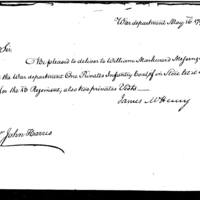 War department May 16
Sir
Be pleased to deliver to William
the War department One Privates Infantry Coat
for the 2d Regiment, also two privates Vests
James McHenry
John Harris